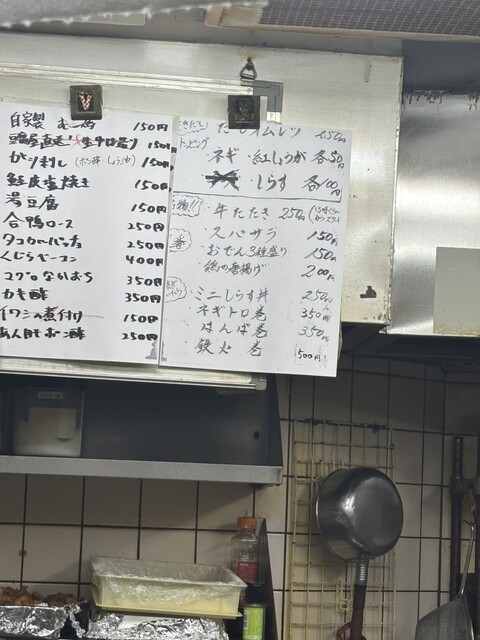 自家製 150円
150円
ガツ刺し (ポン酢・しょうゆ) 150円
鮭皮塩焼き 150円
若豆腐 150円
合鴨ロース 250円
タコカルパッチョ 250円
くじらベーコン 400円
マグロ 350円
カキ酢 350円
イワシの煮付け 150円
あん肝ポン酢 250円
だしオムレツ 250円
トッピング
・ネギ ・紅しょうが 各50円
・しらす 各100円
・牛たたき 250円
・スパサラ 150円
・おでん3種盛り 150円
・鶏の唐揚げ 200円
・ミニしらす丼 250円
・ネギトロ巻 350円
・はんぱ巻 350円
・鉄火巻 500円